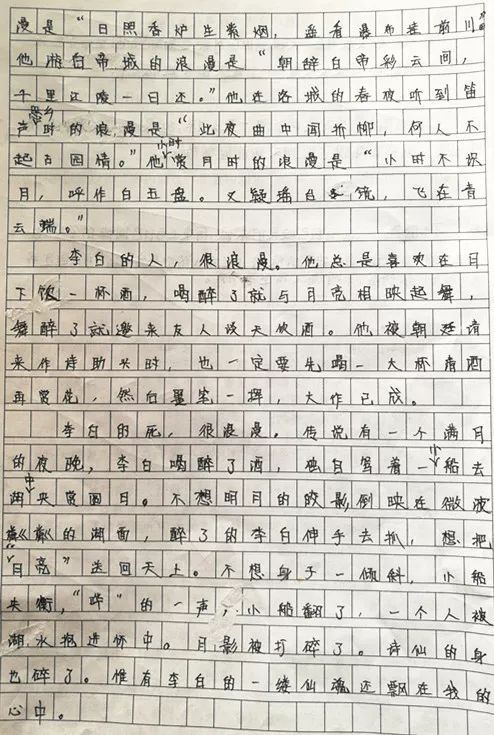 漫是“日照香炉生紫烟，遥看瀑布挂前川”
他游白帝城的浪漫是“朝辞白帝彩云间，
千里江陵一日还。”他在洛城的春夜听到笛
声思乡时的浪漫是“此夜曲中闻折柳，何人不
起古园情。”他小时赏月时的浪漫是“小时不识
月，呼作白玉盘。又疑瑶台镜，飞在青
云端。”
李白的人，很浪漫。他总是喜欢在月
下饮一杯酒，喝醉了就与月亮相映起舞，
舞醉了就邀来友人谈天饮酒。他被朝廷请
来作诗助兴时，也一定要先喝一大杯清酒
再赏花，然后墨笔一挥，大作已成。
李白的死，很浪漫。传说有一个满月
的夜晚，李白喝醉了酒，独自驾着一小船去
湖中央赏圆月。不想明月的皎影倒映在微波
粼粼的湖面，醉了的李白伸手去抓，想把
“月亮”送回天上。不想身子一倾斜，小船
失衡，“哗”的一声，小船翻了，一个人被
湖水抱进怀中。月影被打碎了。诗仙的身
也碎了。惟有李白的一缕仙魂还飘在我的
心中。